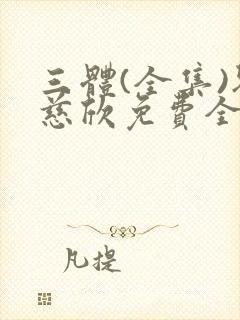 三體(全集)
慈欣免費全
凡提